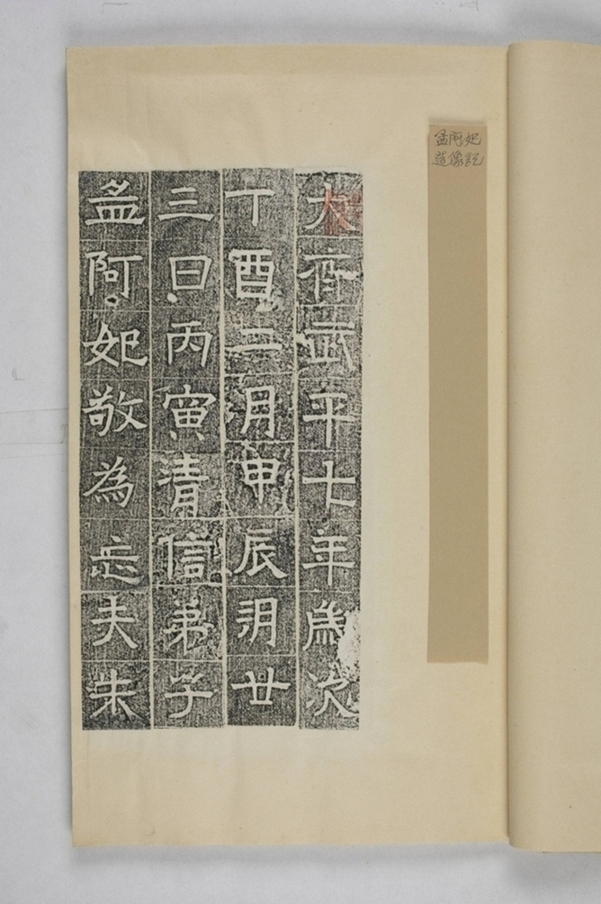 孟阿妃
造像記
大齊武平七年歲次
丁酉二月甲辰朔廿
三日丙寅清信弟子
孟阿妃敬為亡夫朱